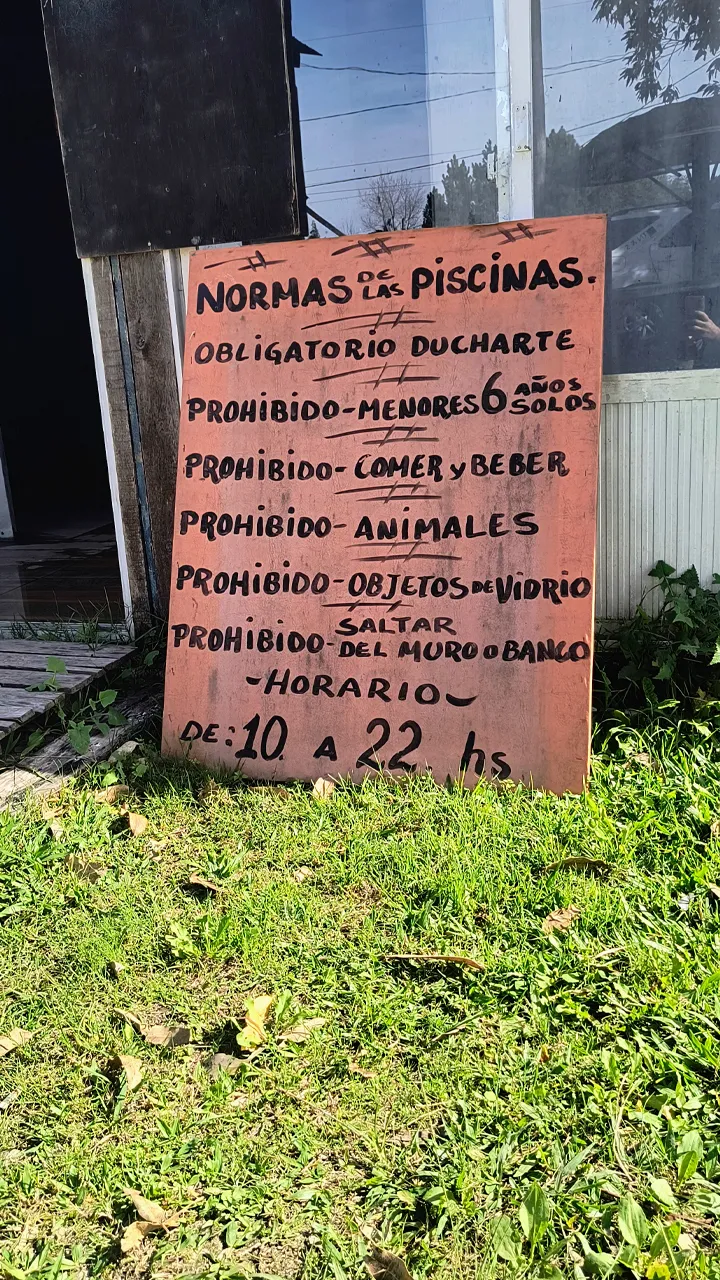 NORMAS DE LAS PISCINAS.
OBLIGATORIO DUCHARTE
PROHIBIDO-MENORES 6 AÑOS SOLOS
PROHIBIDO- COMER y BEBER
PROHIBIDO- ANIMALES
PROHIBIDO-OBJETOS DE VIDRIO
PROHIBIDO- SALTAR DEL MURO O BANCO
-HORARIO-
DE: 10 A 22 hs